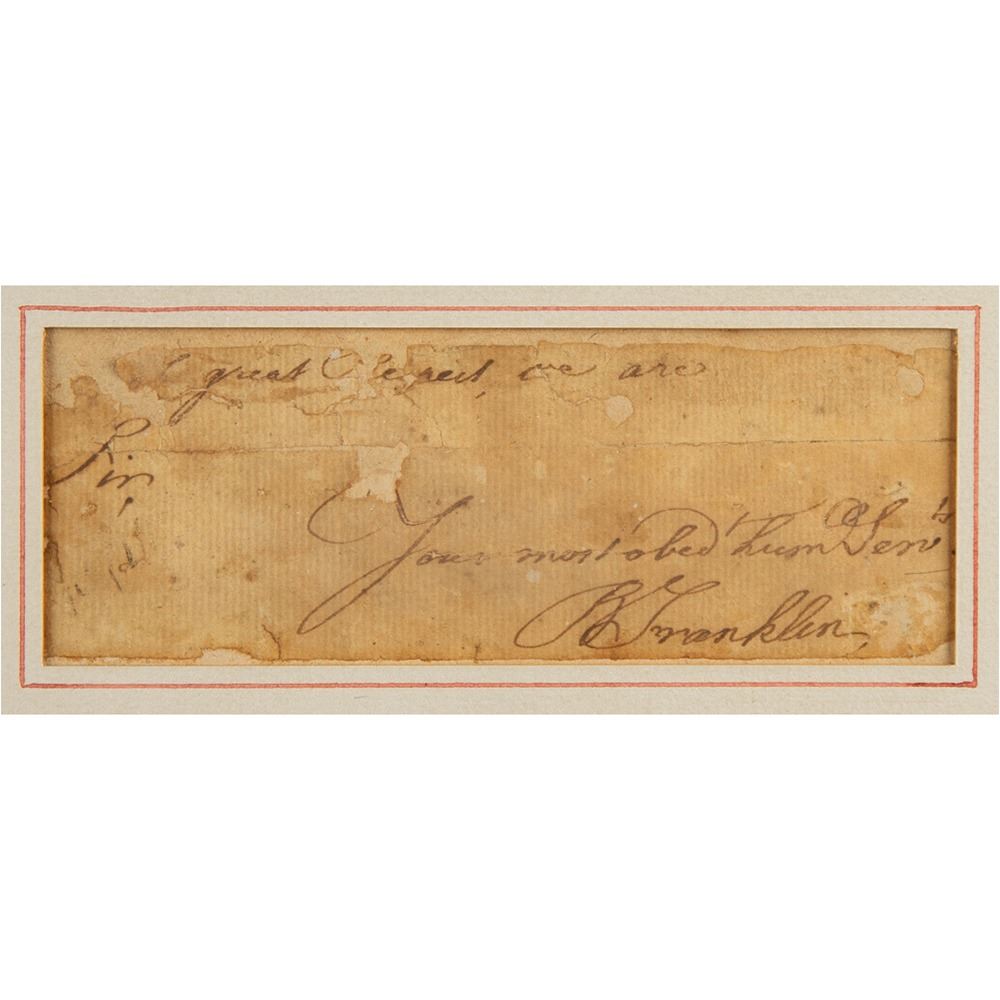 great Respect, we are
Sir,
Your most obed^t hum Serv^ts
B Franklin